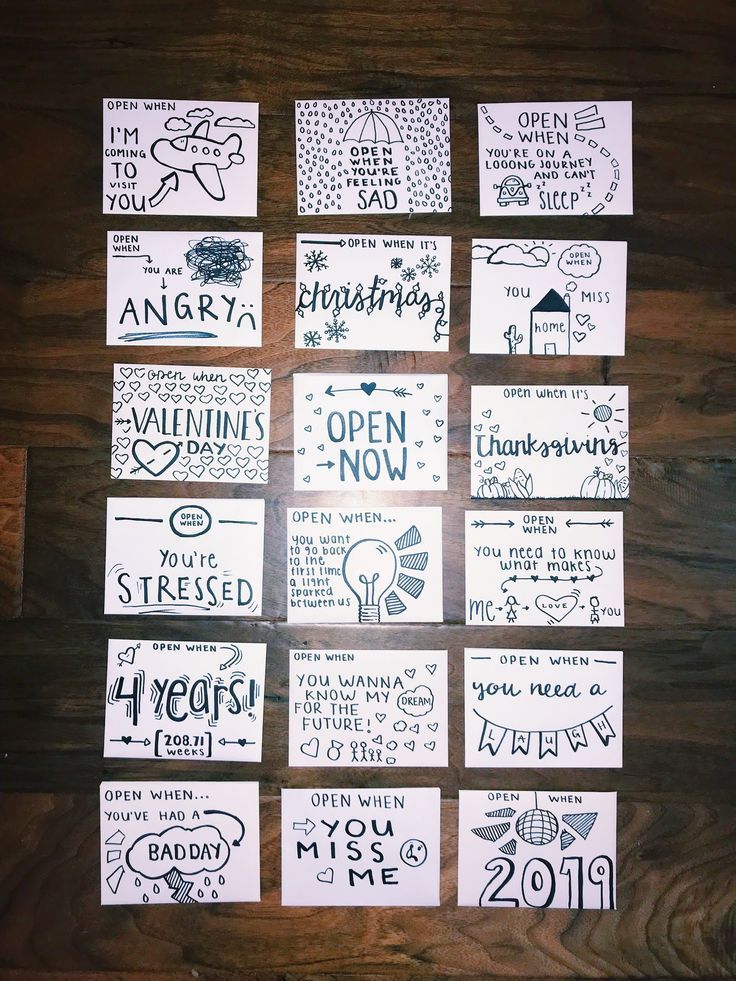 OPEN WHEN
I'M
COMING
TO
VISIT
YOU
OPEN
WHEN
YOU'RE
FEELING
SAD
OPEN
WHEN
YOU'RE ON A
LOOONG JOURNEY
AND CAN'T
SLEEP
zz
zz
zz
OPEN
WHEN
YOU ARE
ANGRY
OPEN WHEN IT'S
christmas
OPEN
WHEN
YOU MISS
home
open when
VALENTINE'S
DAY
OPEN
NOW
OPEN WHEN IT'S
thanksgiving
OPEN
WHEN
YOU'RE
STRESSED
OPEN WHEN...
you want
to go back
to the
first time
a light
sparked
between us
OPEN
WHEN
YOU NEED TO KNOW
WHAT MAKES
me
LOVE
YOU
OPEN WHEN
4 years!
[208.71
WEEKS]
OPEN WHEN
YOU WANNA
KNOW MY
DREAM
FOR THE
FUTURE!
OPEN WHEN
you need a
LAUGH
OPEN WHEN...
YOU'VE HAD A
BAD DAY
OPEN WHEN
YOU
MISS
ME
OPEN WHEN
2019